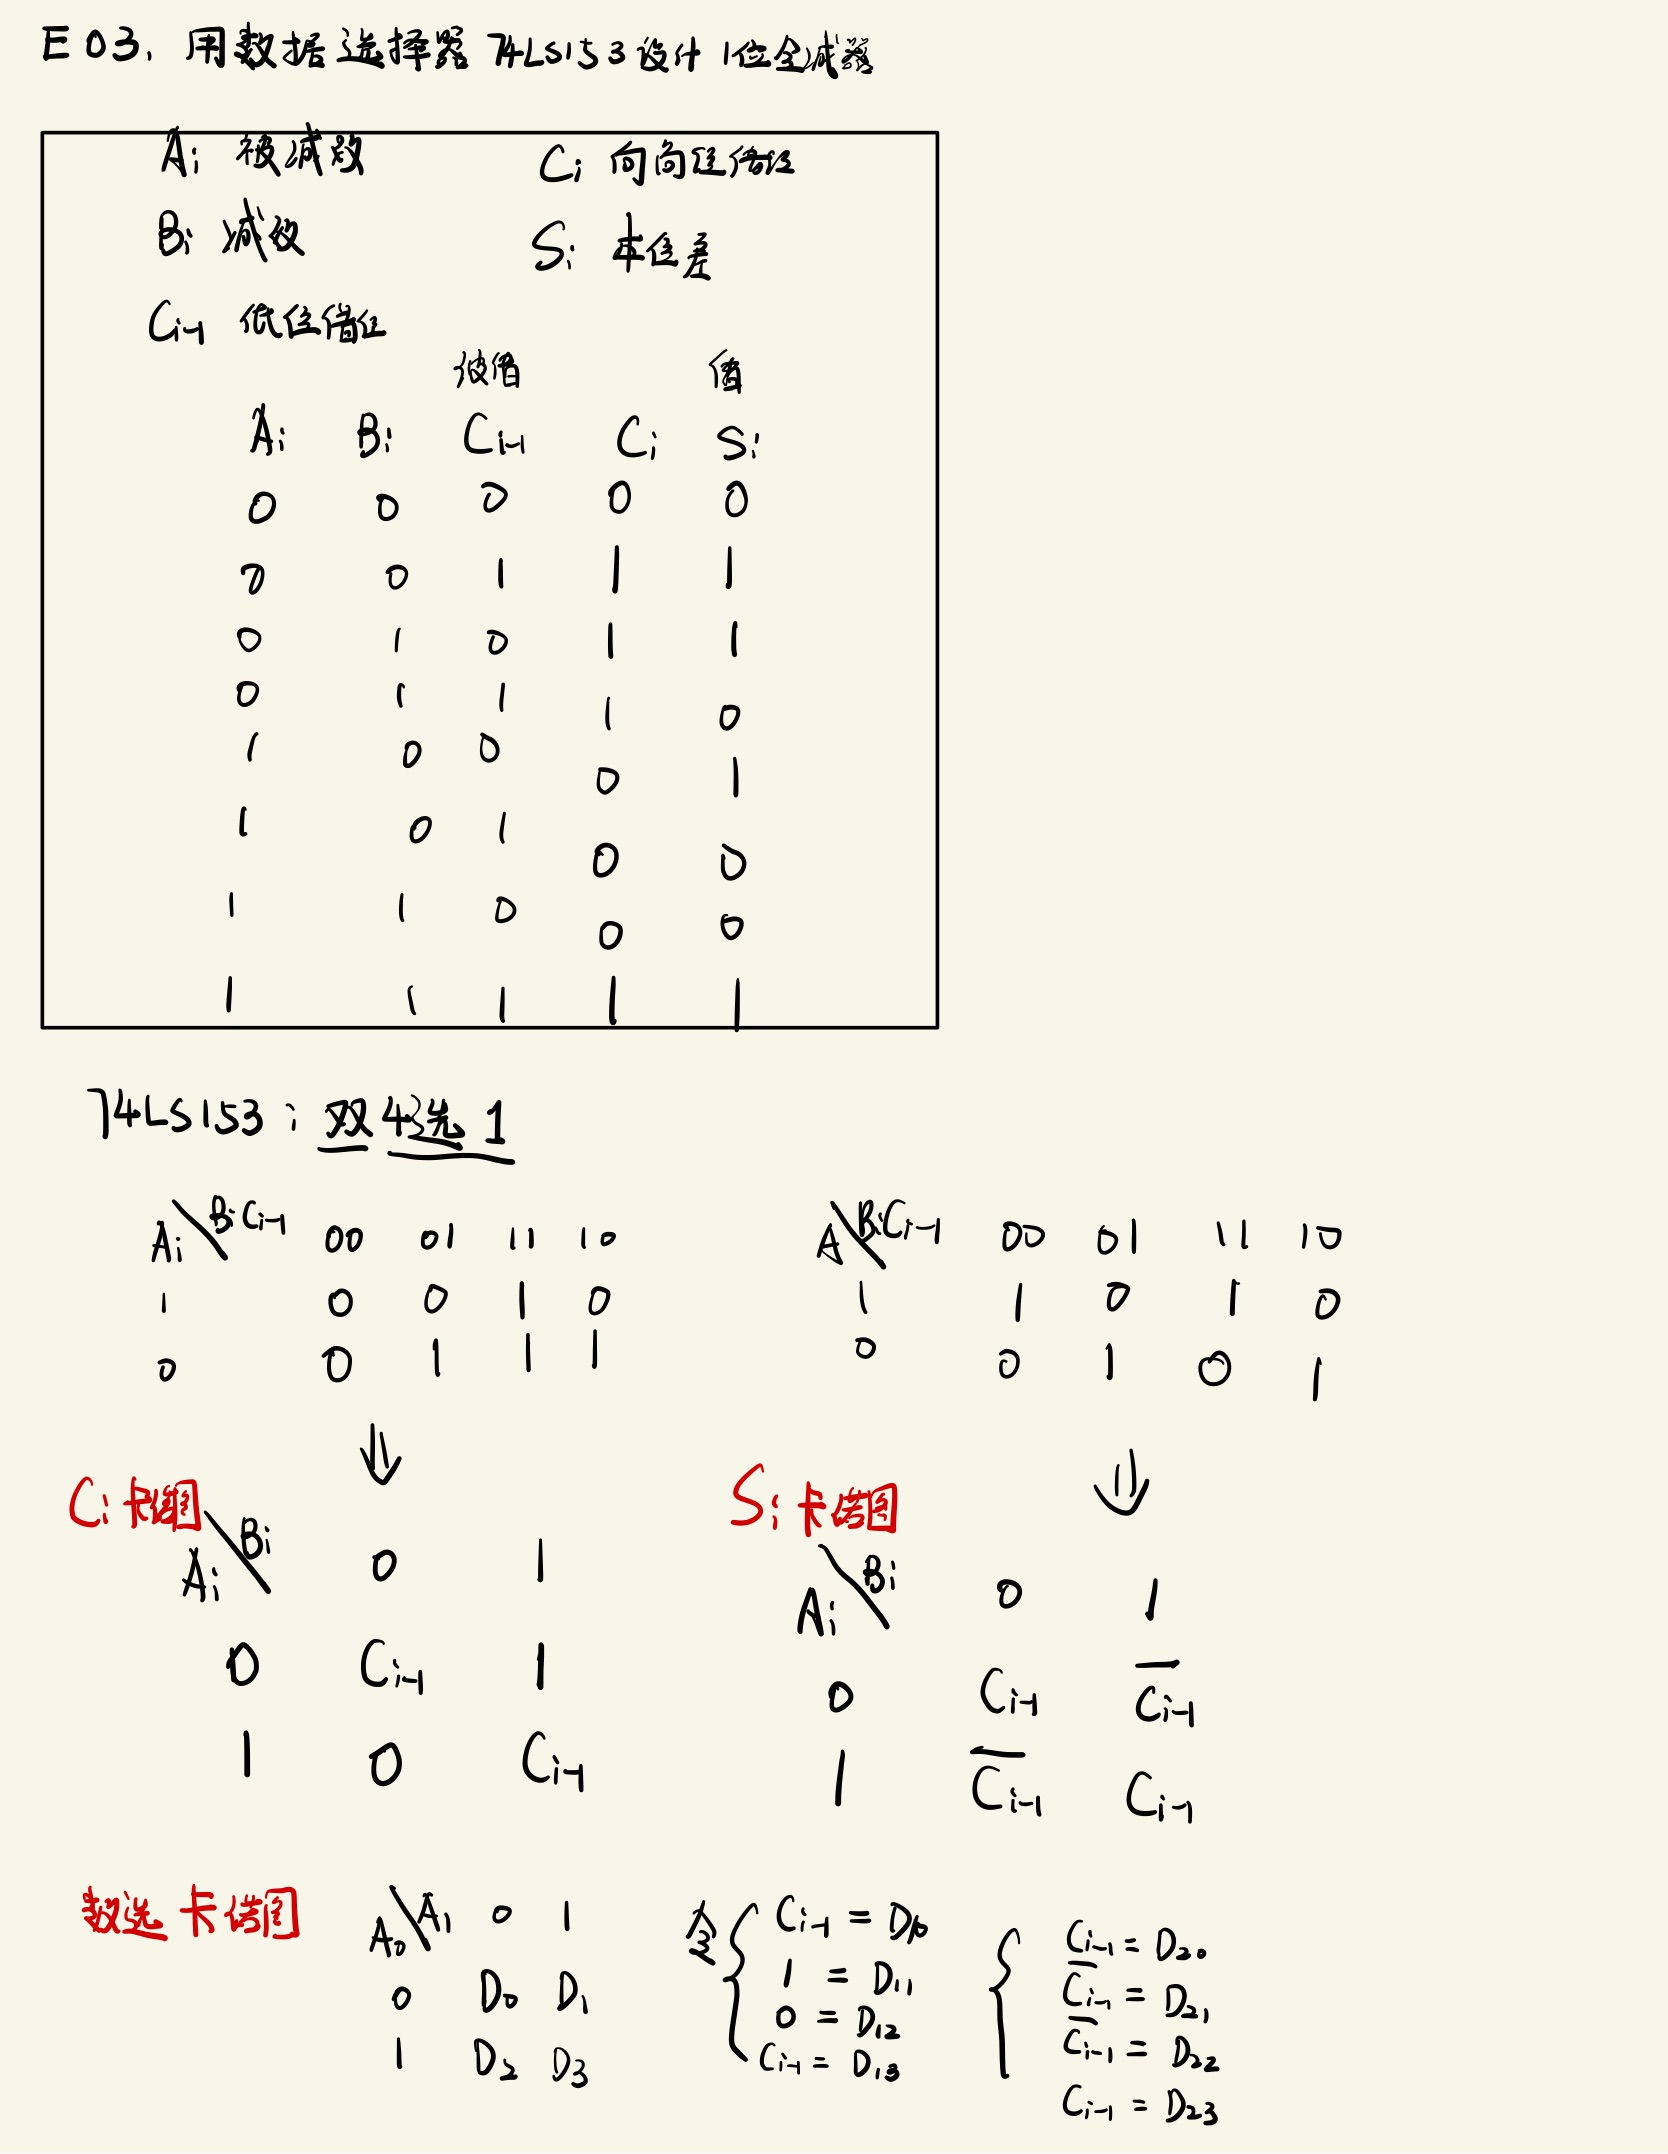 E03. 用数据选择器 74LS153设计 1位全减器
Ai 被减数 Ci 向高位借位
Bi 减数 Si 本位差
Ci-1 低位借位
被借 值
Ai Bi Ci-1 Ci Si
0 0 0 0 0
0 0 1 1 1
0 1 0 1 1
0 1 1 1 0
1 0 0 0 1
1 0 1 0 0
1 1 0 0 0
1 1 1 1 1
74LS153: 双4选1
Ai\BiCi-1 00 01 11 10
1 0 0 1 0
0 0 1 1 1
A\BiCi-1 00 01 11 10
1 1 0 1 0
0 0 1 0 1
⇓ ⇓
Ci 卡诺图
Ai\Bi 0 1
0 Ci-1 1
1 0 Ci-1
Si 卡诺图
Ai\Bi 0 1
0 Ci-1 C̅i-1
1 C̅i-1 Ci-1
数选 卡诺图
A0\A1 0 1
0 D0 D1
1 D2 D3
令 { Ci-1 = D10
1 = D11
0 = D12
Ci-1 = D13
{ Ci-1 = D20
C̅i-1 = D21
C̅i-1 = D22
Ci-1 = D23